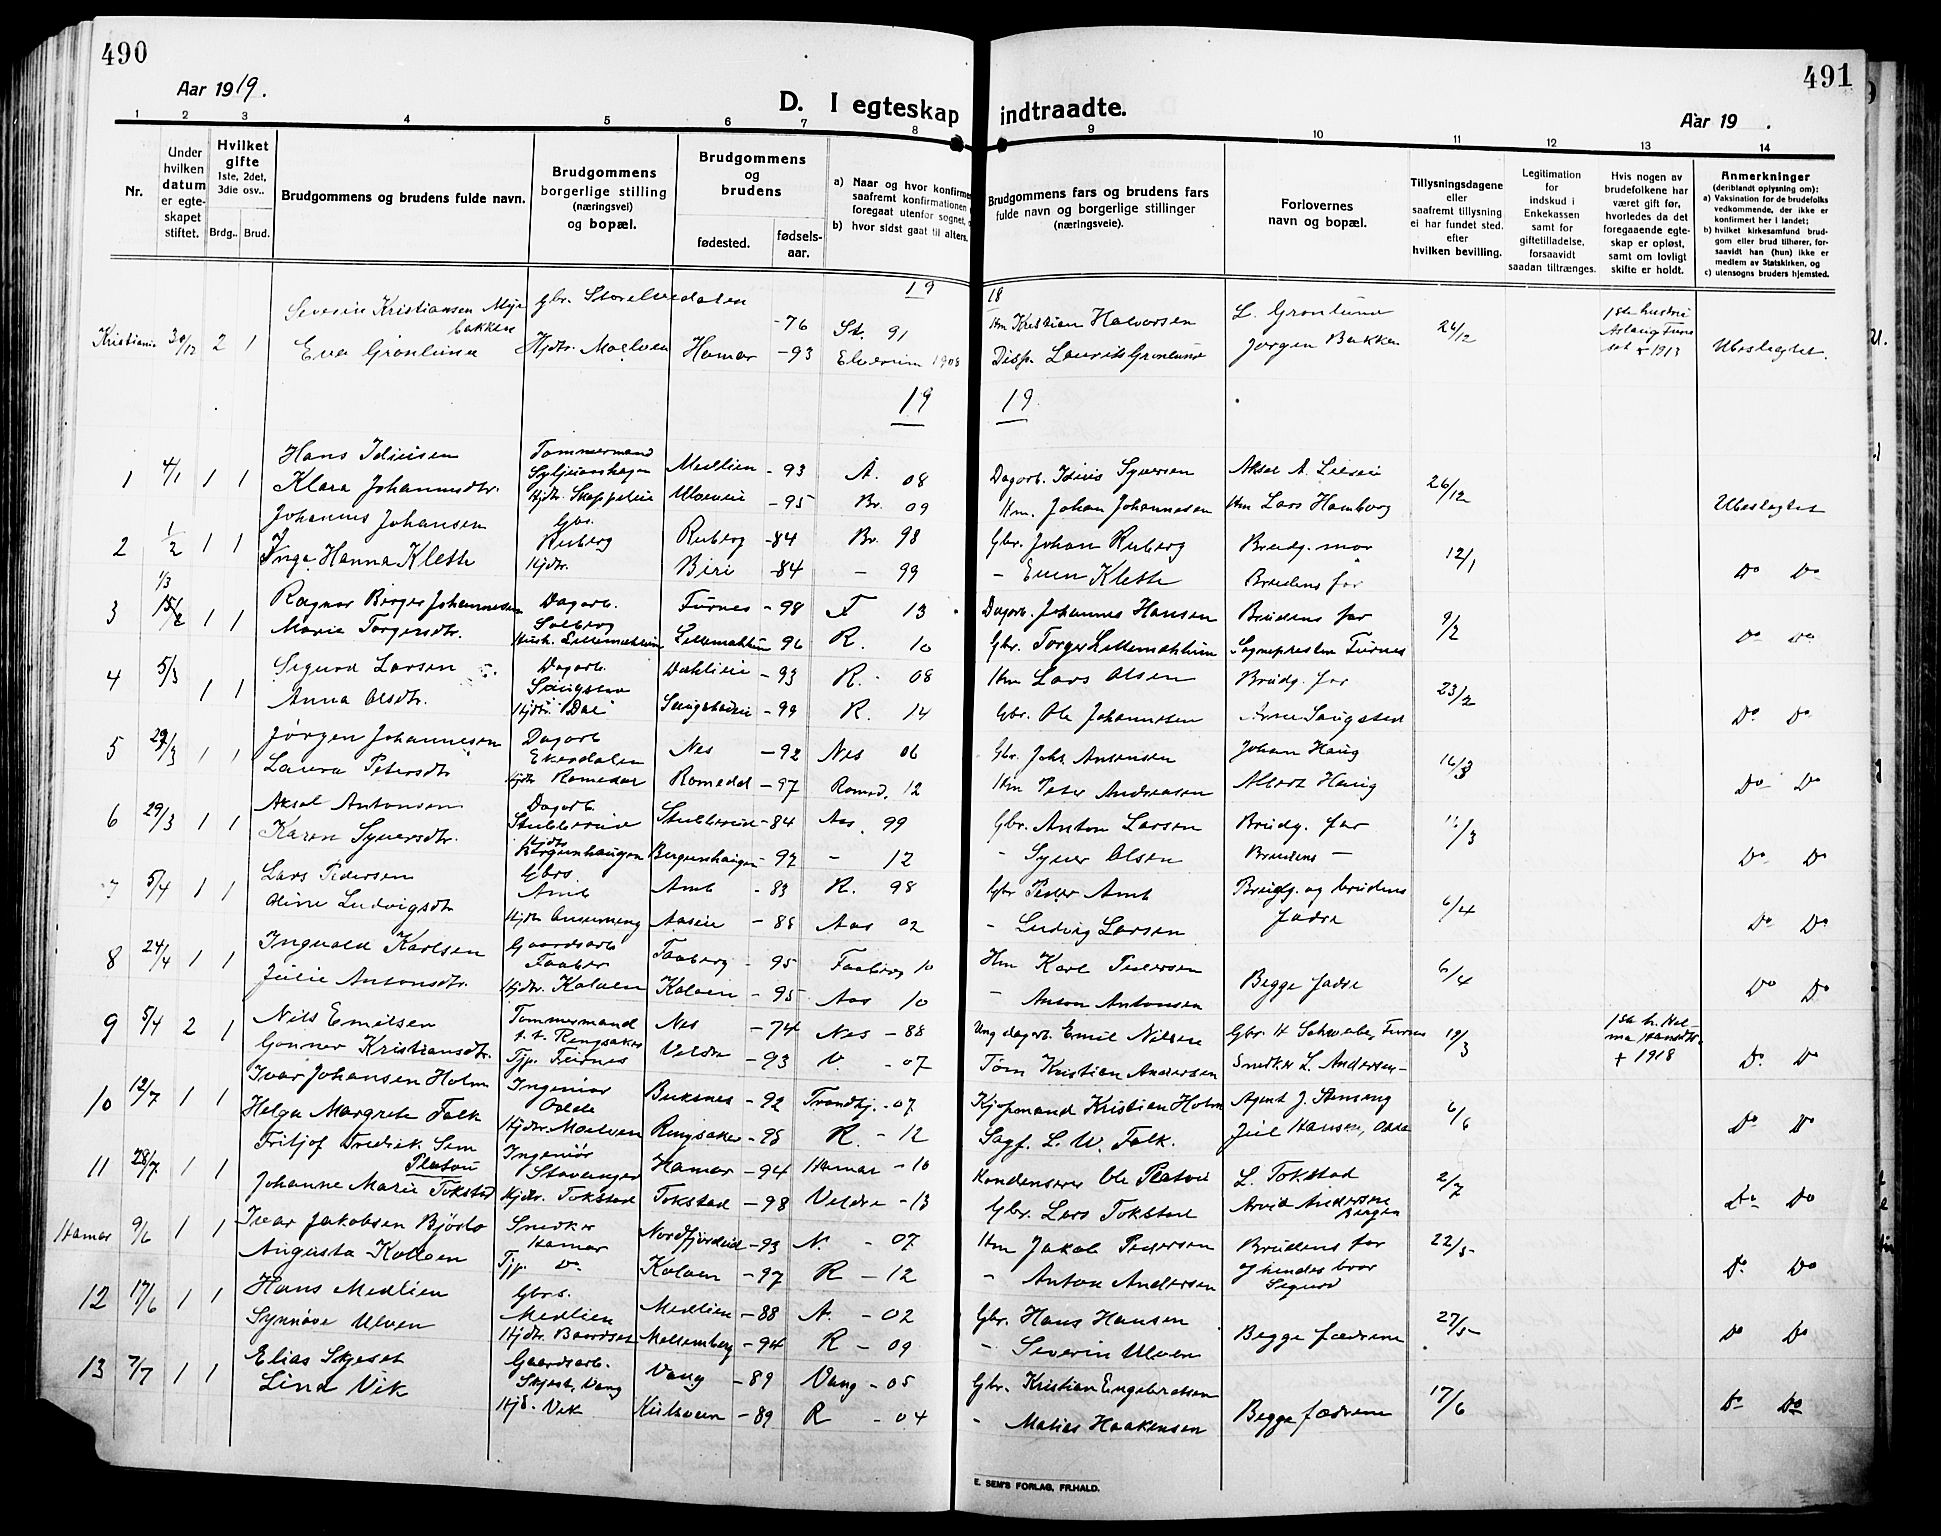 490
Aar 1919.
D. I egteskap indtraadte.
491
Aar 19 .
1 2 3 4 5 6 7 8 9 10 11 12 13 14
Nr.
Under hvilken datum er egte-skapet stiftet.
Hvilket gifte 1ste, 2det, 3die osv..
Brdg.. Brud.
Brudgommens og brudens fulde navn.
Brudgommens borgerlige stilling (næringsvei) og bopæl.
Brudgommens og brudens
fødested.
fødsels-aar.
a) Naar og hvor konfirme
saafremt konfirmationen
foregaat utenfor sognet,
b) hvor sidst gaat til alters.
Brudgommens fars og brudens fars
fulde navn og borgerlige stillinger
(næringsveie).
Forlovernes
navn og bopæl.
Tillysningsdagene
eller
saafremt tillysning
ei har fundet sted.
efter
hvilken bevilling.
Legitimation
for
indskud i
Enkekassen
samt for
giftetilladelse,
forsaavidt
saadan tiltrænges.
Hvis nogen av
brudefolkene har
været gift før,
hvorledes da det
foregaaende egte-
skap er opløst,
samt om lovligt
skifte er holdt.
Anmerkninger
(deriblandt oplysning om):
a) Vaksination for de brudefolks
vedkommende, der ikke er
konfirmert her i landet;
b) hvilket kirkesamfund brud-
gom eller brud tilhører, for-
saavidt han (hun) ikke er
medlem av Statskirken, og
c) utensogns bruders hjemsted.
19 18
Severin Kristiansen Mye Gbr. Storelvedalen -76 St. 91 Hm Kristian Halvorsen L. Grønlund
bakken
Kristiania 30/12 2 1 Eva Grønlund Hjdtr. Moelven Hamar -93 Elverum 1908 Disp. Laurits Grønlund Jørgen Bakken 24/12 1ste hustru Aslaug + 1913 Ubeslegtet.
19 19
1 4/1 1 1 Hans Idiusen Tømmermand Medlien -93 A. 08 Dagarb. Idius Syversen Aksel A. Lieseie 26/12
Klara Johannesdtr. Hjdtr. Skappeleie Uloeveie -95 Br. 09 Hm. Johan Johannesen Hm Lars Hamborg Ubeslegtet
2 1/2 1 1 Johannes Johansen Gbr. Ruberg Ruberg -84 Br. 98 Gbr. Johan Ruberg Brudg. mor 12/1
Inga Hanna Klette Hjdtr. Biri -84 - 99 - Even Klette Brudens far Do Do
3 1/3 15/2 1 1 Ragnar Birger Johannesen Dagarb. Solberg Furnes -98 F 13 Dagarb. Johannes Hansen Brudens far 9/2
Marie Torgersdtr. Hush. Lillemæhlum Lillemæhlum 96 R. 10 Gbr. Torger Lillemæhlum Sognepresten Furnes Do Do
4 5/3 1 1 Sigurd Larsen Dagarb. Saugstad Dæhlieie -93 R. 08 Hm Lars Olsen Brudg. far 23/2
Anna Olsdtr. Hjdtr. "Dal" Saugstadeie -99 R. 14 Gbr. Ole Johannesen Arne Saugstad Do Do
5 29/3 1 1 Jørgen Johannesen Dagarb Ekerdalen Nes -92 Nes 06 Gbr. Johs. Antonsen Johan Haug 16/3
Laura Petersdtr Hjdtr Romedal Romedal -97 Romed. 12 Hm Peter Andreasen Albert Haug Do Do
6 29/3 1 1 Aksel Antonsen Dagarb. Stubberud Stubberud -84 Aas 99 Gbr. Anton Larsen Brudg. far 11/3
Karen Syversdtr. Hjdtr Bergunhaugen Bergunhaugen -92 - 12 - Syver Olsen Brudens - Do Do
7 5/4 1 1 Lars Pedersen Gbrs. Amb Amb -83 R. 98 Gbr Peder Amb Brudg. og brudens 6/4
Oline Ludvigsdtr Hjdtr Aaseie -88 Aas 02 - Ludvig Larsen fædre Do Do
8 24/4 1 1 Ingvald Karlsen Gaardsarb Faaberg Faaberg -95 Faaberg 10 Hm Karl Pedersen Begge fædre 6/4
Julie Antonsdtr. Hjdtr. Kolven Kolven -95 Aas 10 - Anton Antonsen Do Do
9 5/4 2 1 Nils Emilsen Tømmermand t. t. Ringsaker Nes -74 Nes -88 Ung dagarb. Emil Nilsen Gbr H Schwabe, Furnes 19/3 1ste h. Helma Hansdtr. + 1918
Gunner Kristiansdtr. Tjp. Furnes Veldre -93 V. -07 Tøm Kristian Andersen Snedker L. Andersen - Do Do
10 12/7 1 1 Ivar Johansen Holm Ingeniør Odda Buksnes -92 Trondhj. -07 Kjøpmand Kristian Holm Agent J. Stenseng 6/6
Helga Margrete Falk Hjdtr. Moelven Ringsaker -95 R. -12 Sagf. L. W. Falk. Juel Hansen, Odda Do Do
11 28/7 1 1 Fritjof Fredrik Sem Platou Ingeniør Stavanger Hamar -94 Hamar -10 Kondenserer Ole Platou L. Tokstad 2/7
Johanne Marie Tokstad Hjdtr. Tokstad Tokstad -98 Veldre -13 Gbr. Lars Tokstad Arvid Andersen Bergen Do Do
Hamar 9/6 1 1 Ivar Jakobsen Bjørlo Snedker Hamar Nordfjordeid -93 N. -07 Hm Jakob Pedersen Brudens far 22/5
Augusta Kolven Tjp. Do. Kolven -97 R -12 - Anton Andersen og hendes bror Sigurd Do Do
12 17/6 1 1 Hans Medlien Gbrs. Medlien Medlien -88 A. -02 Gbr. Hans Hansen Begge fædrene 27/5
Synnøve Ulven Hjdtr. Baardset Malsemberg -94 R -09 - Severin Ulven Do Do
13 7/7 1 1 Elias Skjeset Gaardsarb. Skjeset, Vang Vang -89 Vang -05 Gbr. Kristian Engebretsen Begge fædrene 17/6
Lina Vik Hjd. Vik Kulsveen -89 R -04 - Matias Haakensen Do Do
E. SEM'S FORLAG, FR.HALD.